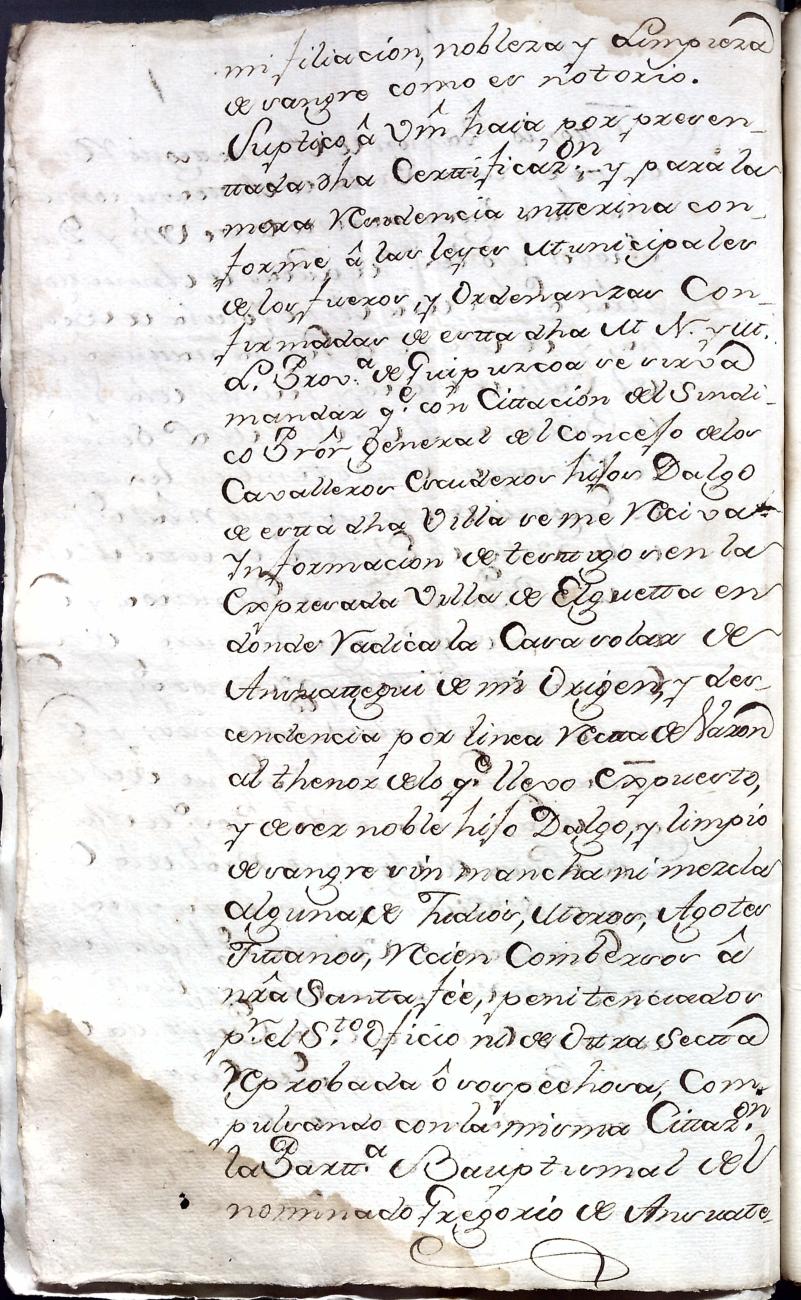 mi filiación, nobleza y Limpieza
de sangre como es notorio.
Suplico â Vm̂ haia por presen-
ttada dha Certtificaz.on y para la
mera Residencia intterina con-
forme â las leyes Municipales
de los fueros, y Ordenanzas Con-
firmadas de estta dha M. N. y M.
L. Prov.a de Guipuzcoa se sirva
mandar q.e con Cittación del Sindi-
co Prôr general del Concejo de los
Cavalleros Escuderos hijos Dalgo
de estta dha Villa se me Reciva
Informacion de testtigos en la
Expresada Villa de Elguetta en
donde Radica la Casa solar de
Ansuattegui de mi Origen, y des-
cendencia por linea Rectta de Varon
al thenor de lo q.e llevo Expuesto,
y de ser noble hijo Dalgo, y limpio
de sangre sin mancha ni mezcla
alguna, de Judios, Moros, Agotes
Jittanos, Recien Combersos â
nr̃a Santa fée, penitenciados
p.r el S.to Oficio ni de Ottra Sectta
Reprobada ô sospechosa, Com-
pulsando con la misma Cittaz.on
la Partt.a Bauptismal del
nominado Gregorio de Ansuate-